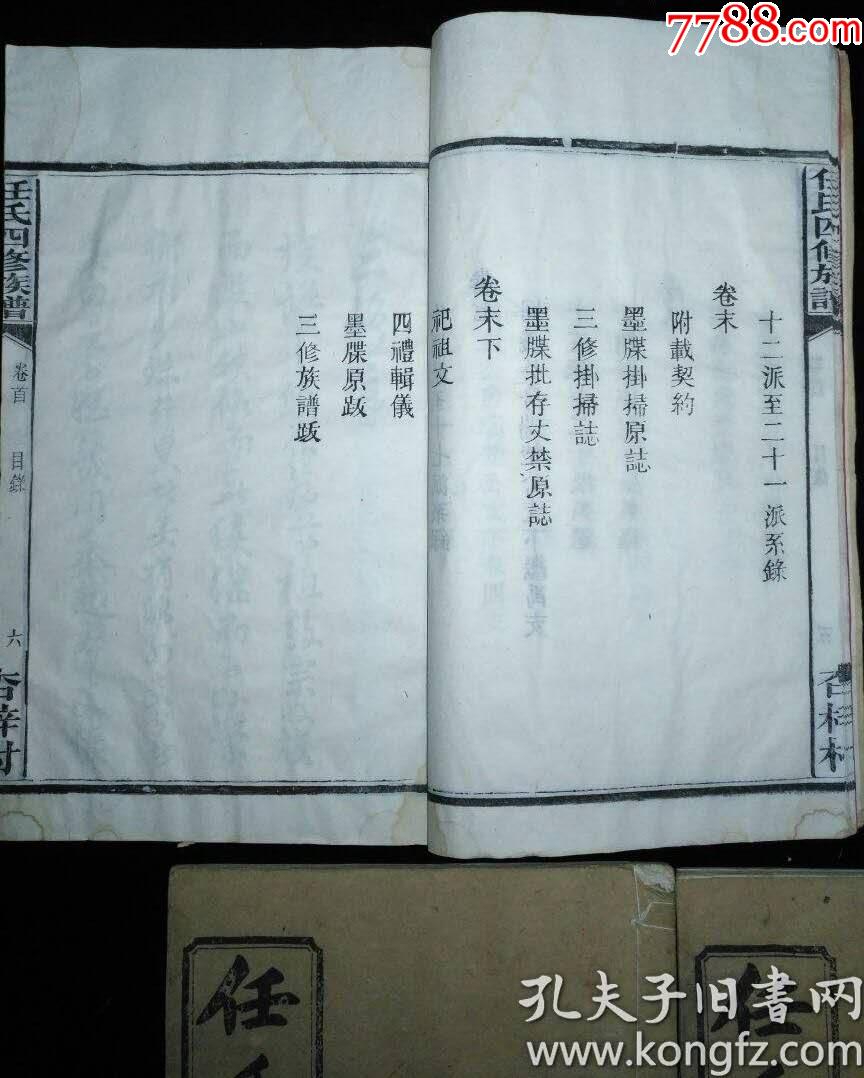 7788.com
任氏四修族譜
十二派至二十一派系錄
卷末
附載契約
墨牒掛掃原誌
三修掛掃誌
墨牒批存丈禁原誌
卷末下
祀祖文
四禮輯儀
墨牒原跋
三修族譜跋
任氏四修族譜
卷首
目錄
六
任
任
孔夫子旧书网
www.kongfz.com